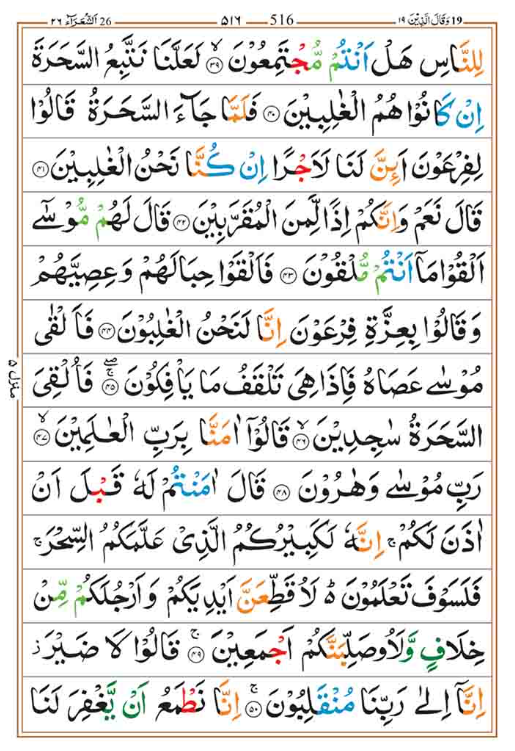 19 وَقَالَ الَّذِيْنَ ١٩ 516 ٥١٦ 26 اَلشُّعَرَآء ٢٦
لِلنَّاسِ هَلْ اَنْتُمْ مُّجْتَمِعُوْنَ ۙ‏﴿۳۹﴾ لَعَلَّنَا نَتَّبِعُ السَّحَرَةَ
اِنْ كَانُوْا هُمُ الْغٰلِبِيْنَ ﴿۴۰﴾ فَلَمَّا جَآءَ السَّحَرَةُ قَالُوْا
لِفِرْعَوْنَ اَئِنَّ لَنَا لَاَجْرًا اِنْ كُنَّا نَحْنُ الْغٰلِبِيْنَ ﴿۴۱﴾
قَالَ نَعَمْ وَاِنَّكُمْ اِذًا لَّمِنَ الْمُقَرَّبِيْنَ ﴿۴۲﴾ قَالَ لَهُمْ مُّوْسٰٓى
اَلْقُوْا مَاۤ اَنْتُمْ مُّلْقُوْنَ ﴿۴۳﴾ فَاَلْقَوْا حِبَالَهُمْ وَعِصِيَّهُمْ
وَقَالُوْا بِعِزَّةِ فِرْعَوْنَ اِنَّا لَنَحْنُ الْغٰلِبُوْنَ ﴿۴۴﴾ فَاَلْقٰى
مُوْسٰى عَصَاهُ فَاِذَا هِيَ تَلْقَفُ مَا يَاْفِكُوْنَ ۚۖ‏﴿۴۵﴾ فَاُلْقِيَ
السَّحَرَةُ سٰجِدِيْنَ ۙ‏﴿۴۶﴾ قَالُوْۤا اٰمَنَّا بِرَبِّ الْعٰلَمِيْنَ ۙ‏﴿۴۷﴾
رَبِّ مُوْسٰى وَهٰرُوْنَ ﴿۴۸﴾ قَالَ اٰمَنْتُمْ لَهٗ قَبْلَ اَنْ
اٰذَنَ لَكُمْ ۚ اِنَّهٗ لَكَبِيْرُكُمُ الَّذِيْ عَلَّمَكُمُ السِّحْرَ ۚ
فَلَسَوْفَ تَعْلَمُوْنَ ؕ۬ لَاُقَطِّعَنَّ اَيْدِيَكُمْ وَاَرْجُلَكُمْ مِّنْ
خِلَافٍ وَّلَاُوصَلِّبَنَّكُمْ اَجْمَعِيْنَ ۚ‏﴿۴۹﴾ قَالُوْا لَا ضَيْرَ ز
اِنَّاۤ اِلٰى رَبِّنَا مُنْقَلِبُوْنَ ۚ‏﴿۵۰﴾ اِنَّا نَطْمَعُ اَنْ يَّغْفِرَ لَنَا
منزل ٥